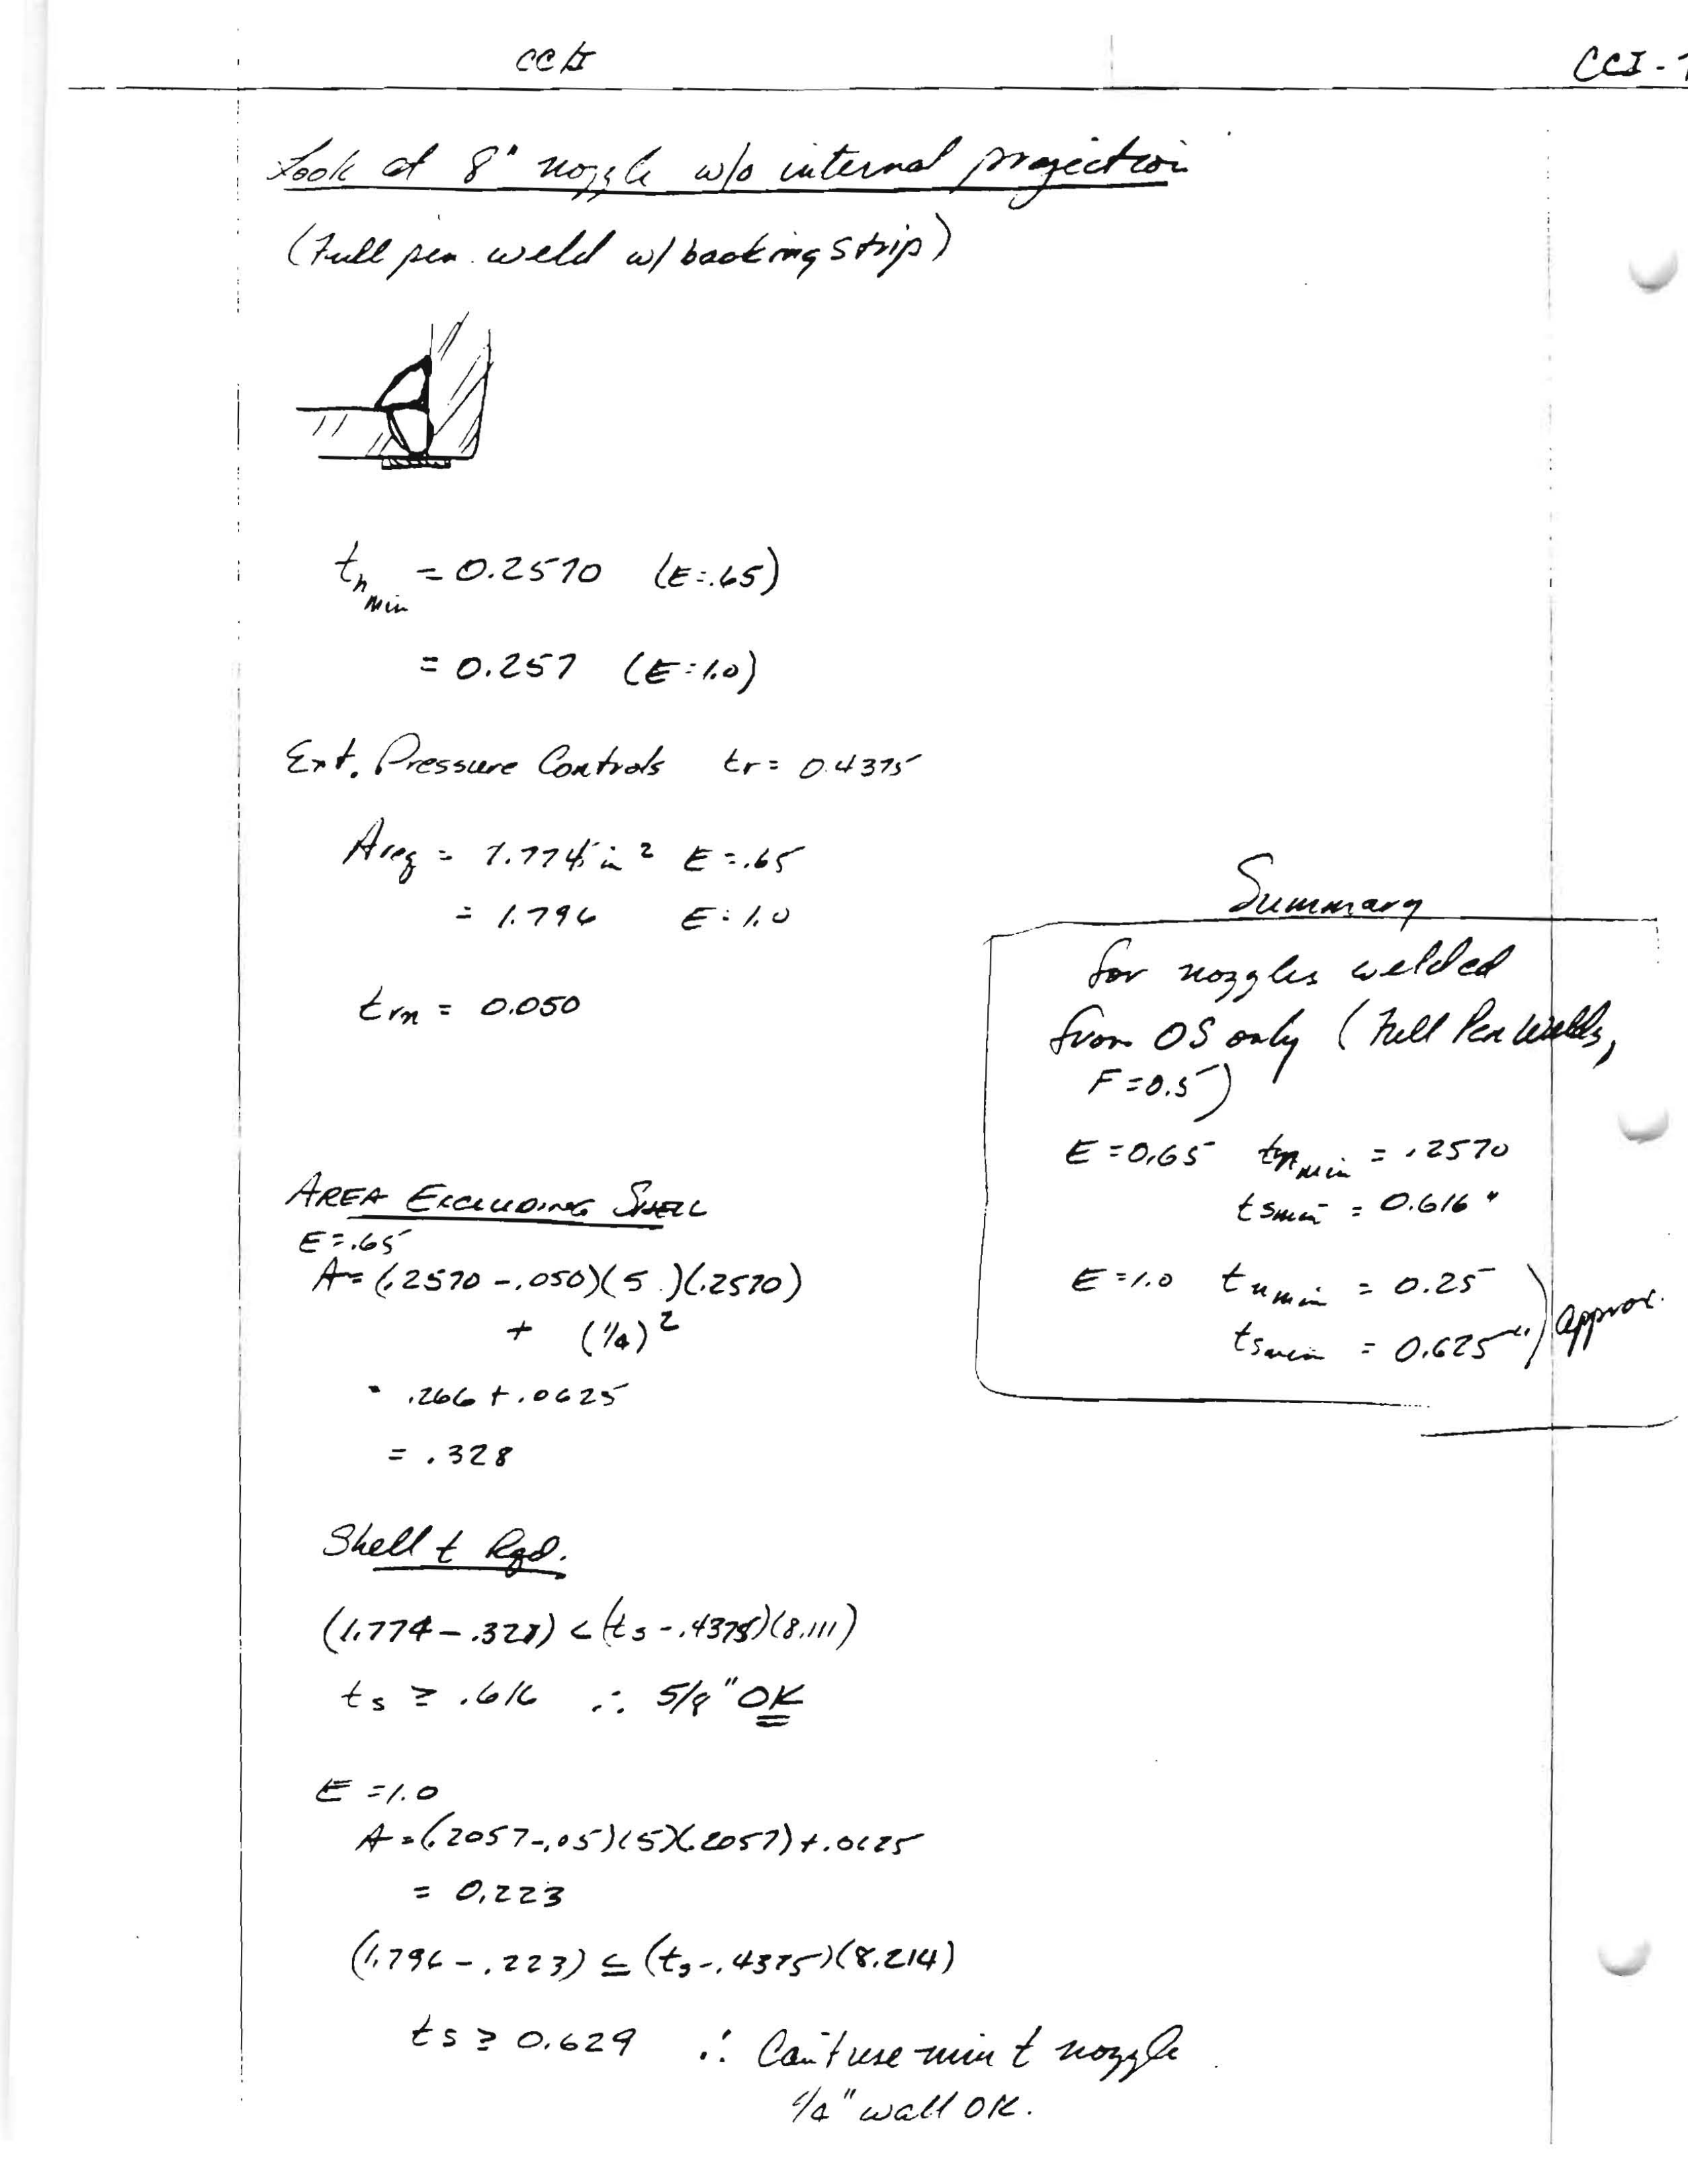 CCI-1
Look at 8" nozzle w/o internal projection
(Full pen. weld w/ backing strip)
tn min = 0.2570 (E=.65)
= 0.257 (E=1.0)
Ext. Pressure Controls tr = 0.4375
Areq = 1.774 in² E=.65
= 1.796 E=1.0
trn = 0.050
Summary
for nozzles welded
from OS only (Full Pen Welds,
F=0.5)
E=0.65 tn min = .2570
ts min = 0.616"
E=1.0 tn min = 0.25
ts min = 0.625" ) approx.
AREA EXCLUDING SHELL
E=.65
A=(.2570-.050)(5 )(.2570)
+ (1/4)²
= .266 + .0625
= .328
Shell t Rqd.
(1.774-.328) < (ts-.4375)(8.111)
ts ≥ .616 ∴ 5/8" OK
E=1.0
A=(.2057-.05)(5)(.2057)+.0625
= 0.223
(1.796-.223) ≤ (ts-.4375)(8.214)
ts ≥ 0.629 ∴ Can't use min t nozzle
1/4" wall OK.